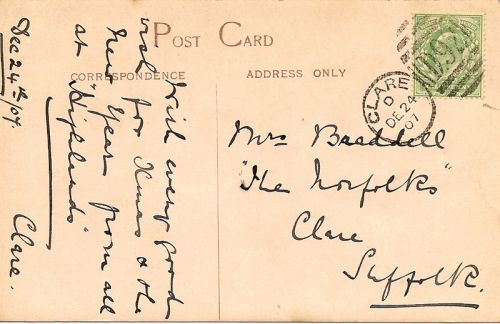 POST CARD
CORRESPONDENCE
ADDRESS ONLY
With every good
wish for Xmas & the
New Year from all
at "Highlands"
Clare.
Dec 24th/07.
CLARE
D
DE 24
07
Mrs Braddell
"The Norfolks"
Clare
Suffolk.